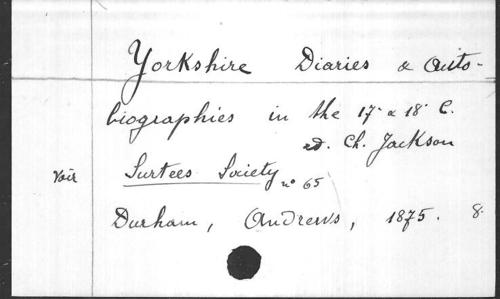 Yorkshire Diaries & Auto-
biographies in the 17ᵉ & 18ᵉ C.
ed. Ch. Jackson
Voir Surtees Society nº 65
Durham, Andrews, 1875. 8.